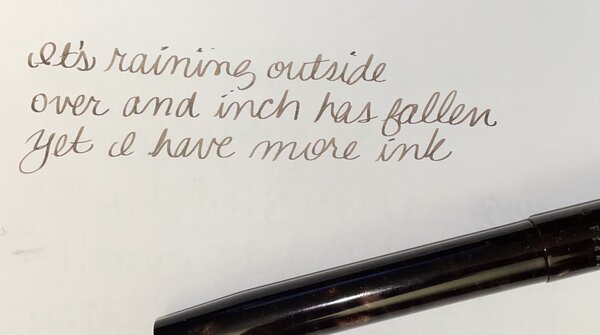 It's raining outside
over and inch has fallen
Yet I have more ink